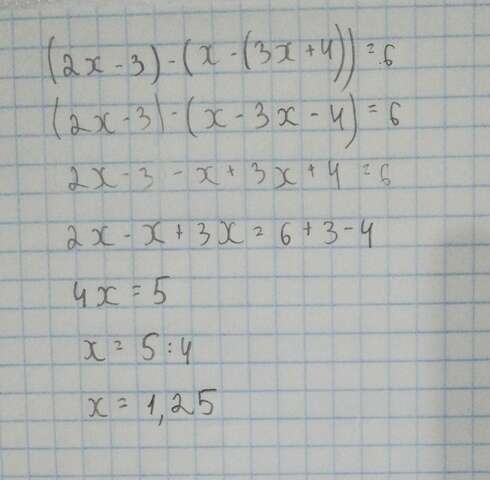 (2x-3)-(x-(3x+4))=6
(2x-3)-(x-3x-4)=6
2x-3-x+3x+4=6
2x-x+3x=6+3-4
4x=5
x=5:4
x=1,25